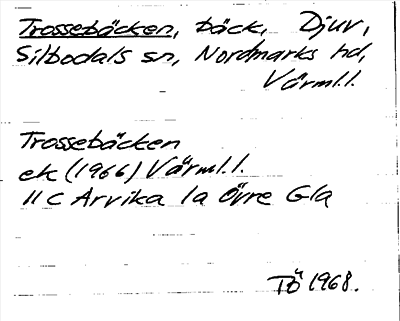 Trossebäcken, bäck, Djuv,
Silbodals sn, Nordmarks hd,
Värml.l.
Trossebäcken
ek (1966) Värml.l.
11 C Arvika 1a Övre Gla
TÖ 1968.